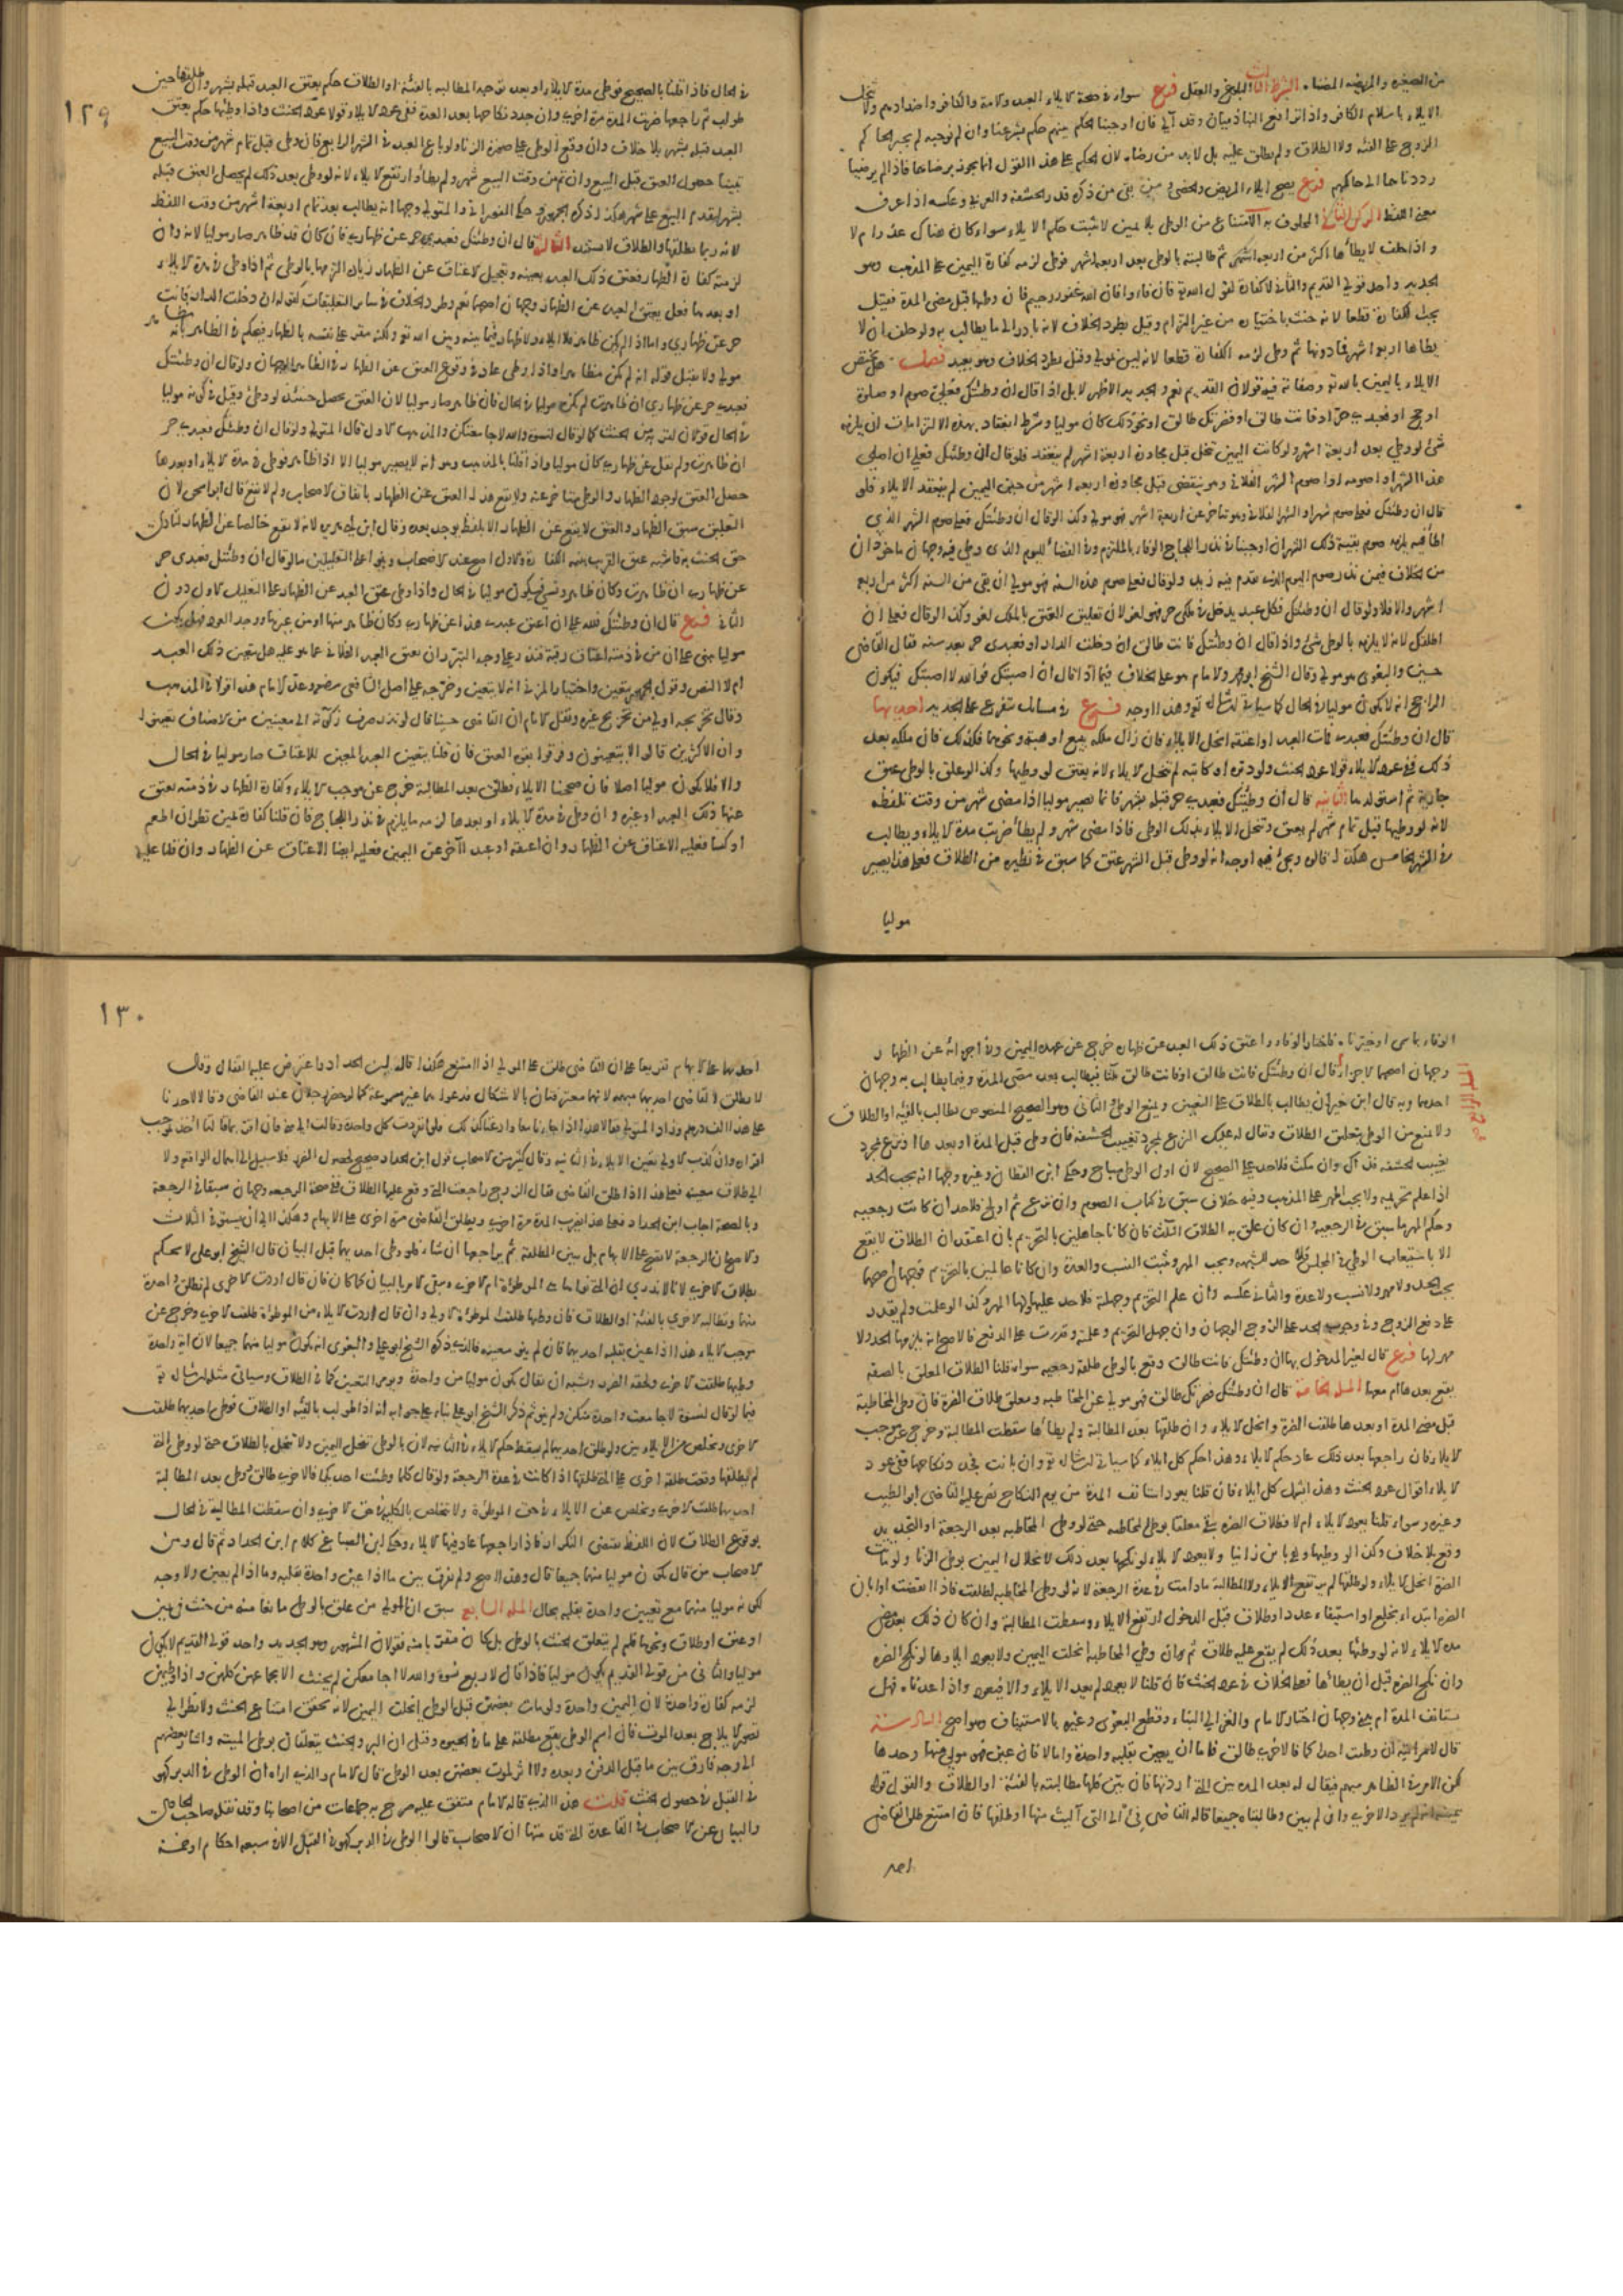 من الصغيرة والمريضة المضناه. الشرط الثالث البلوغ والعقل فرع سواء في صحة الايلاء العبد والامة والكافر واضدادهم ولا ينحل
الايلاء باسلام الكافر واذا ترافع الينا ذميان وقد آلي فان اوجبنا الحكم بينهم حكم بشرعنا وان لم نوجبه لم يجبر الحاكم
الزوج على الفئة ولا الطلاق ولم يطلق عليه بل لا بد من رضاه لان الحكم على هذا القول انما يجوز برضاهما فاذا لم يرضيا
رددناهما الى حاكمهم فرع يصح ايلاء المريض والخصي ومن بقي من ذكره قدر الحشفة والعربي وعكسه اذا عرف
معنى اللفظ الركن الثاني المحلوف به الامتناع من الوطي بلا يمين لا يثبت حكم الايلاء سواء كان هناك عذر ام لا
واذا حلف لا يطأها اكثر من اربعة اشهر ثم طالبته بالوطي بعد اربعة اشهر فوطي لزمه كفارة اليمين على المذهب وهو
الجديد واحد قولي القديم والثاني لا كفارة لقول الله تعالى فان فاءوا فان الله غفور رحيم فان وطيها قبل مضي المدة فقيل
يجب الكفارة قطعا لانه حنث باختياره من غير الزام وقيل بطرد الخلاف لانه بادر الى ما يطالب به ولو حلف ان لا
يطاها اربعة اشهر فما دونها ثم وطي لزمه الكفارة قطعا لانه ليس بمولي وقيل بطرد الخلاف وهو بعيد فصل هل يختص
الايلاء باليمين بالله تعالى وصفاته فيه قولان القديم نعم والجديد الاظهر لا بل اذا قال ان وطئتك فعلي صوم او صلوة
او حج او فعبدي حر او فانت طالق او فضرتك طالق او نحو ذلك كان موليا وشرط انعقاده بهذه الالتزامات ان يلزمه
شي لو وطي بعد اربعة اشهر ولو كانت اليمين تنحل قبل مجاوزة اربعة اشهر لم ينعقد فلو قال ان وطئتك فعلي ان اصلي
هذا الشهر او اصومه او اصوم الشهر الفلاني وهو ينقضي قبل مجاوزة اربعة اشهر من حين اليمين لم ينعقد الايلاء فلو
قال ان وطئتك فعلي صوم شهر او الشهر الفلاني وهو متاخر عن اربعة اشهر فهو مولي وكذا لو قال ان وطئتك فعلي صوم الشهر الذي
اطأ فيه يلزمه صوم بقية ذلك الشهر ان اوجبنا في نذر اللجاج الوفاء بالملتزم وفي القضاء لليوم الذي وطي فيه وجهان ماخوذان
من الخلاف فيمن نذر صوم اليوم الذي يقدم فيه زيد ولو قال فعلي صوم هذه السنة فهو مولي ان بقي من السنة اكثر من اربعة
اشهر والا فلا ولو قال ان وطئتك فكل عبد يدخل في ملكي حر فهو لغو لان تعليق العتق بالملك لغو وكذا لو قال فعلي ان
اطلقك لانه لا يلزمه بالوطي شي واذا قال ان وطئتك فانت طالق ان دخلت الدار او فعبدي حر بعد سنة فقال القاضي
حسين والبغوي هو مولي وقال الشيخ ابو محمد والامام هو على الخلاف فيما اذا قال ان اصبتك فوالله لا اصبتك فيكون
الراجح انه لا يكون موليا في الحال كما سياتي ان شاء الله تعالى وهذا اوجه فرع في مسائل تتفرع على الجديد احديها
قال ان وطئتك فعبدي فمات العبد او اعتقه انحل الايلاء فان زال ملكه ببيع او هبة ونحوهما فكذلك فان ملكه بعد
ذلك ففي عود الايلاء قولا عود الحنث ولو دبره او كاتبه لم تنحل الايلاء لانه يعتق لو وطيها وكذا لو علق بالوطي عتق
جارية ثم استولدها الثانية قال ان وطئتك فعبدي حر قبله بشهر فانما يصير موليا اذا مضى شهر من وقت تلفظه
لانه لو وطيها قبل تمام شهر لم يعتق وتنحل الايلاء بذلك الوطي فاذا مضى شهر ولم يطأ ضربت مدة الايلاء ويطالب
في الشهر الخامس هكذا قالوه ويجئ فيه وجه انه لو وطي قبل الشهر عتق كما سبق في نظيره من الطلاق فعلى هذا يصير
موليا
١٢٩
في الحال فاذا قلنا بالصحيح فوطي مدة الايلاء او بعد توجه المطالبة بالفئة او الطلاق حكم بعتق العبد قبله بشهر وان طلقها حين
طولب ثم راجعها ضربت المدة مرة اخرى وان جدد نكاحها بعد العدة ففي عود الايلاء قولا عود الحنث واذا وطيها حكم بعتق
العبد قبله بشهر بلا خلاف وان وقع الوطي على صورة الزنا ولو باع العبد في الشهر الرابع فان وطي قبل تمام شهر من وقت البيع
تبينا حصول العتق قبل البيع وان تم من وقت البيع شهر ولم يطأ ارتفع الايلاء لانه لو وطي بعد ذلك لم يحصل العتق قبله
بشهر لتقدم البيع على شهر هكذا ذكره الجمهور وحكى الفوراني والمتولي وجها انه يطالب بعد تمام اربعة اشهر من وقت اللفظ
لانه ربما يطلقها والطلاق لا يستند الثالثة قال ان وطئتك فعبدي حر عن ظهاري فان كان قد ظاهر صار موليا لانه وان
لزمته كفارة الظهار فعتق ذلك العبد بعينه وتعجيل الاعتاق عن الظهار زيادة التزمها بالوطي ثم اذا وطي في مدة الايلاء
او بعدها فعل يعتق العبد عن الظهار وجهان اصحهما نعم وطرد الخلاف في سائر التعليقات كقوله ان دخلت الدار فانت
حر عن ظهاري واما اذا لم يكن ظاهر فلا ايلاء ولا ظهار فيما بينه وبين الله تعالى ولكنه مقر على نفسه بالظهار فيحكم في الظاهر بانه مظاهر
مولي ولا يقبل قوله انه لم يكن مظاهرا واذا وطي عاد في وقوع العتق عن الظهار في الظاهر الوجهان ولو قال ان وطئتك
فعبدي حر عن ظهاري ان ظاهرت لم يكن موليا في الحال فان ظاهر صار موليا لان العتق يحصل حينئذ لو وطئ وقيل في كونه موليا
في الحال قولان لقربه من الحنث كما لو قال لنسوة والله لا جامعتكن والمذهب الاول قال المتولي ولو قال ان وطئتك فعبدي حر
ان ظاهرت ولم يقل عن ظهاري كان موليا واذا قلنا بالمذهب وهو انه لا يصير موليا الا اذا ظاهر فوطي في مدة الايلاء او بعدها
حصل العتق لوجود الظهار والوطي متاخر عنه ولا يقع هذا العتق عن الظهار باتفاق الاصحاب ولم لا يقع قال ابو اسحق لان
التعليق سبق الظهار والعتق لا يقع عن الظهار الا بلفظ يوجد بعده وقال ابن ابي هريرة لانه لا يقع خالصا عن الظهار لتادي
حق الحنث به فاشبه عتق القريب بنية الكفارة والاول اصح عند الاصحاب وبنوا على التعليلين ما لو قال ان وطئتك فعبدي حر
عن ظهاري ان ظاهرت وكان ظاهر ونسي فيكون موليا في الحال واذا وطي عتق العبد عن الظهار وعلى التعليل الاول دون
الثاني فرع قال ان وطئتك فلله علي ان اعتق عبدي هذا عن ظهاري وكان ظاهر منها او من غيرها ووجد العود فهل يكون
موليا يبنى على ان من في ذمته اعتاق رقبة فنذر على وجه التبرر ان يعتق العبد الفلاني عما هو عليه هل يتعين ذلك العبد
ام لا النص وقول الجمهور يتعين واختيار المزني انه لا يتعين وخرجه على اصل الشافعي رضي الله عنه وعد الامام هذا قولا في المذهب
وقال تخريجه اولى من تخريج غيره ونقل الامام ان القاضي حسينا قال لو نذر صرف زكاته الى معينين من الاصناف تعينوا
وان الاكثرين قالوا لا يتعينون وفرقوا بقوة العتق فان قلنا يتعين العبد المعين للاعتاق صار موليا في الحال
والا فلا يكون موليا اصلا فان صححنا الايلاء فطلق بعد المطالبة خرج عن موجب الايلاء وكفارة الظهار في ذمته يعتق
عنها ذلك العبد او غيره وان وطي في مدة الايلاء او بعدها لزمه ما يلزم في نذر اللجاج فان قلنا كفارة يمين نظر ان اطعم
او كسا فعليه الاعتاق عن الظهار وان اعتقه او عبدا آخر عن اليمين فعليه ايضا الاعتاق عن الظهار وان قلنا عليه
الوفاء بما سمى او خيرناه فاختار الوفاء واعتق ذلك العبد عن ظهاره خرج عن عهدة اليمين وفي اجزائه عن الظهار
وجهان اصحهما الاجزاء قال ان وطئتك فانت طالق او فانت طالق ثلثا فيطالب بعد مضي المدة وفيما يطالب به وجهان
احدهما وبه قال ابن خيران يطالب بالطلاق على التعيين ويمنع الوطي والثاني وهو الصحيح المنصوص يطالب بالفيئة او الطلاق
ولا يمنع من الوطي بتعليق الطلاق ويقال له عليك النزع بمجرد تغييب الحشفة فان وطي قبل المدة او بعدها ونزع بمجرد
تغييب الحشفة فذاك وان مكث فلا حد على الصحيح لان اول الوطي مباح وحكى ابن القطان وغيره وجها انه يجب الحد
اذا علم تحريمه ولا يجب المهر على المذهب وفيه خلاف سبق في كتاب الصوم وان نزع ثم اولج فلا حد ان كانت رجعية
وحكم المهر ما سبق في الرجعية وان كان علق به الطلاق الثلث فان كانا جاهلين بالتحريم بان اعتقدا ان الطلاق لا يقع
الا باستيعاب الوطي في المجلس فلا حد للشبهة ويجب المهر ويثبت النسب والعدة وان كانا عالمين بالتحريم فوجهان اصحهما
يجب الحد ولا مهر ولا نسب ولا عدة والثاني عكسه وان علم التحريم وجهلته فلا حد عليها ولها المهر وكذا لو علمت ولم يقدر
على دفع الزوج وفي وجوب الحد على الزوج الوجهان وان جهل التحريم وعلمته وقدرت على الدفع فالاصح انه يلزمها الحد ولا
مهر لها فرع قال لغير المدخول بها ان وطئتك فانت طالق وقع بالوطي طلقة رجعية سواء قلنا الطلاق المعلق بالصفة
يقع بعدها ام معها المسلة الخامسة قال ان وطئتك فضرتك طالق فهو مولي عن المخاطبه ومعلق طلاق الضرة فان وطي المخاطبة
قبل مضي المدة او بعدها طلقت الضرة وانحل الايلاء وان طلقها بعد المطالبة ولم يطأها سقطت المطالبة وخرج عن موجب
الايلاء فان راجعها بعد ذلك عاد حكم الايلاء وهذا حكم كل ايلاء كما سياتي ان شاء الله تعالى وان بانت فجدد نكاحها ففي عود
الايلاء اقوال عود الحنث وهذا يشمل كل ايلاء فان قلنا يعود استانف المدة من يوم النكاح نص عليه القاضي ابو الطيب
وغيره وسواء قلنا يعود الايلاء ام لا فطلاق الضرة يبقى معلقا بوطي المخاطبه حتى لو وطي المخاطبه بعد الرجعة او التجديد
وقع بلا خلاف وكذا لو وطيها وهي بائن زانيا ولا يعود الايلاء لو نكحها بعد ذلك لانحلال اليمين بوطي الزنا ولو ماتت
الضرة انحل الايلاء ولو طلقها لم يرتفع الايلاء ولا المطالبة ما دامت في عدة الرجعة لانه لو وطي المخاطبه لطلقت فاذا انقضت او ابان
الضره ابتداء بخلع او استيفاء عدد او طلاق قبل الدخول ارتفع الايلاء وسقطت المطالبة وان كان ذلك بعد مضي
مدة الايلاء لانه لو وطئها بعد ذلك لم يقع عليه طلاق ثم ان وطي المخاطبه انحلت اليمين ولا يعود الايلاء لو نكح الضره
وان نكح الضره قبل ان يطأها فعلى الخلاف في عود الحنث فان قلنا لا يعود لم يعد الايلاء والا فيعود واذا اعدناه فهل
تستانف المدة ام يبني وجهان اختار الامام والغزالي البناء وقطع البغوي وغيره بالاستيناف وهو اصح السادسة
قال لامراتيه ان وطئت احداكما فالاخرى طالق فاما ان يعين بقلبه واحدة واما لا فان عين فهو مولي منها وحدها
لكن الامر في الظاهر مبهم فيقال له بعد المدة بين التي اردتها فان بين فلها مطالبته بالفئة او الطلاق والقول قوله
الاخرى وان لم يبين وطالبتاه جميعا قال له القاضي فئ الى التي آليت منها او طلقها فان امتنع طلق القاضي
احد
١٣٠
احديهما على الابهام تفريعا على ان القاضي يطلق على المولي اذا امتنع هكذا قاله ابن الحداد واعترض عليه القفال وقال
لا يطلق القاضي احديهما مبهمة لانهما معترفتان بالاشكال فدعواهما غير مسموعة كما لو حضر رجلان عند القاضي وقالا لاحدنا
على هذا الف درهم وزاد المتولي فقال هذا اذا جاءتا معا وادعتا كذلك فلو انفردت كل واحدة وقالت آلى مني فان اقر بما قالتا اخذ بموجب
اقراره وان كذب الاولى تعين الايلاء في الثانية وقال كثيرون من الاصحاب قول ابن الحداد صحيح لحصول الضرر فلا سبيل الى اهمال الواقعة ولا
الى طلاق معينة فعلى هذا اذا طلق القاضي فقال الزوج راجعت التي وقع عليها الطلاق ففي صحة الرجعة وجهان سبقا في الرجعة
وبالصحة اجاب ابن الحداد فعلى هذا يضرب المدة مرة اخرى ويطلق القاضي مرة اخرى على الابهام وهكذا الى ان يستوفي الثلاث
والاصح ان الرجعة لا تصح على الابهام بل تبين المطلقة ثم يراجعها ان شاء فلو وطي احديهما قبل البيان قال الشيخ ابو علي لا يحكم
بطلاق الاخرى لانا لا ندري ان التي نواها هي الموطوءة ام الاخرى ويبقى الامر بالبيان كما كان فان قال اردت الاخرى لم تطلق واحدة
منهما وتطالبه الاخرى بالفئة او الطلاق فان وطيها طلقت الموطوءة الاولى وان قال اردت الايلاء من الموطوءة طلقت الاخرى وخرج عن
موجب الايلاء هذا اذا عين بقلبه احديهما فان لم ينو معينة فالذي ذكره الشيخ ابو علي والبغوي انه يكون موليا منهما جميعا لان اية واحدة
وطيها طلقت الاخرى ولحقه الضرر ويشبه ان يقال يكون موليا من واحدة ويؤمر بالتعيين كما في الطلاق وسياتي مثله ان شاء الله تعالى
فيما لو قال لنسوة لا جامعت واحدة منكن ولم ينو ثم ذكر الشيخ ابو علي بناء على جوابه انه اذا طولب بالفيئة او الطلاق فوطي احديهما طلقت
الاخرى وتخلص من الايلاءين ولو طلق احديهما لم يسقط حكم الايلاء في الثانية لان بالوطي تنحل اليمين ولا تنحل بالطلاق حتى لو وطي التي
لم يطلقها وقعت طلقة اخرى على التي طلقها اذا كانت في عدة الرجعة ولو قال كلما وطئت احديكما فالاخرى طالق ووطي بعد المطالبة
احديهما طلقت الاخرى وتخلص عن الايلاء في حق الموطوءة ولا يتخلص بالكلية في حق الاخرى وان سقطت المطالبة في الحال
بوقوع الطلاق لان اللفظ يقتضي التكرار فاذا راجعها عاد فيها الايلاء وحكى ابن الصباغ كلام ابن الحداد ثم قال ومن
الاصحاب من قال يكون موليا منهما جميعا قال وهذا اصح ولم نفرق بين ما اذا عين واحدة بقلبه وما اذا لم يعين ولا وجه
لكونه موليا منهما مع تعيين واحدة بقلبه بحال المسله السابعة سبق ان المولي من علق بالوطي مانعا منه من حنث في يمين
او عتق او طلاق ونحوها فلم لم يتعلق الحنث بالوطي بل كان مقربا منه فقولان المشهور وهو الجديد واحد قولي القديم لا يكون
موليا والثاني من قولي القديم يكون موليا فاذا قال لاربع نسوة والله لا اجامعكن لم يحنث الا بجماعهن كلهن واذا وطيهن
لزمه كفارة واحدة لان اليمين واحدة ولو مات بعضهن قبل الوطي انحلت اليمين لانه تحقق امتناع الحنث ولا نظر الى
تصور الايلاج بعد الموت فان اسم الوطي يقع مطلقه على ما في الحيوة وقيل ان البر والحنث يتعلقان بوطي الميتة واشار بعضهم
الى وجه فارق بين ما قبل الدفن وبعده ولا اثر لموت بعضهن بعد الوطي قال الامام والذي اراه ان الوطي في الدبر كهو
في القبل في حصول الحنث قلت هذا الذي قاله الامام متفق عليه صرح به جماعات من اصحابنا وقد نقله صاحب الحاوي
والبيان عن الاصحاب في القاعدة التي قدمتها ان الاصحاب قالوا الوطي في الدبر كهو في القبل الا في سبعة احكام او خمسة